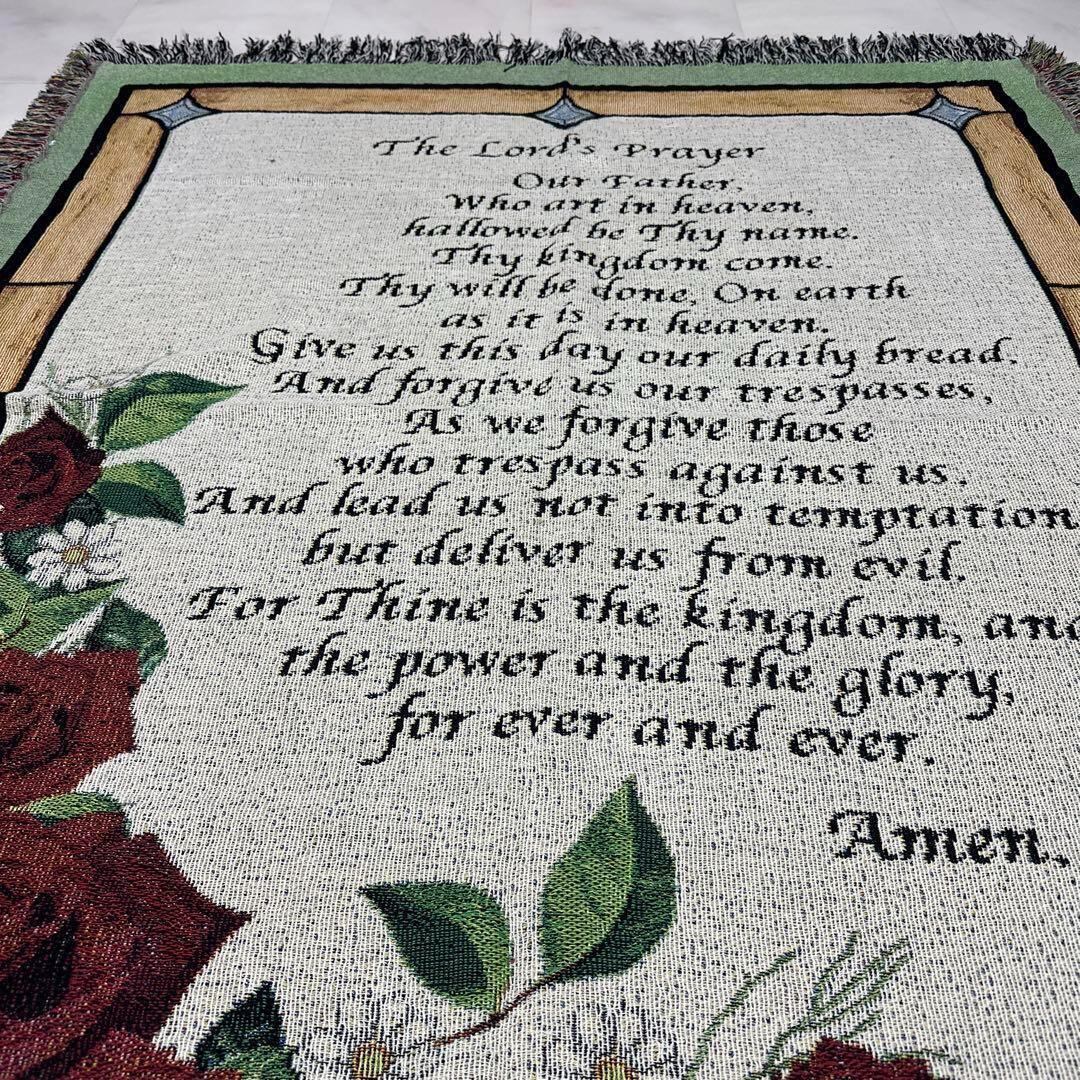 The Lord's Prayer
Our Father,
Who art in heaven,
hallowed be Thy name.
Thy kingdom come.
Thy will be done, On earth
as it is in heaven.
Give us this day our daily bread.
And forgive us our trespasses,
As we forgive those
who trespass against us.
And lead us not into temptation
but deliver us from evil.
For Thine is the kingdom, and
the power and the glory,
for ever and ever.
Amen.